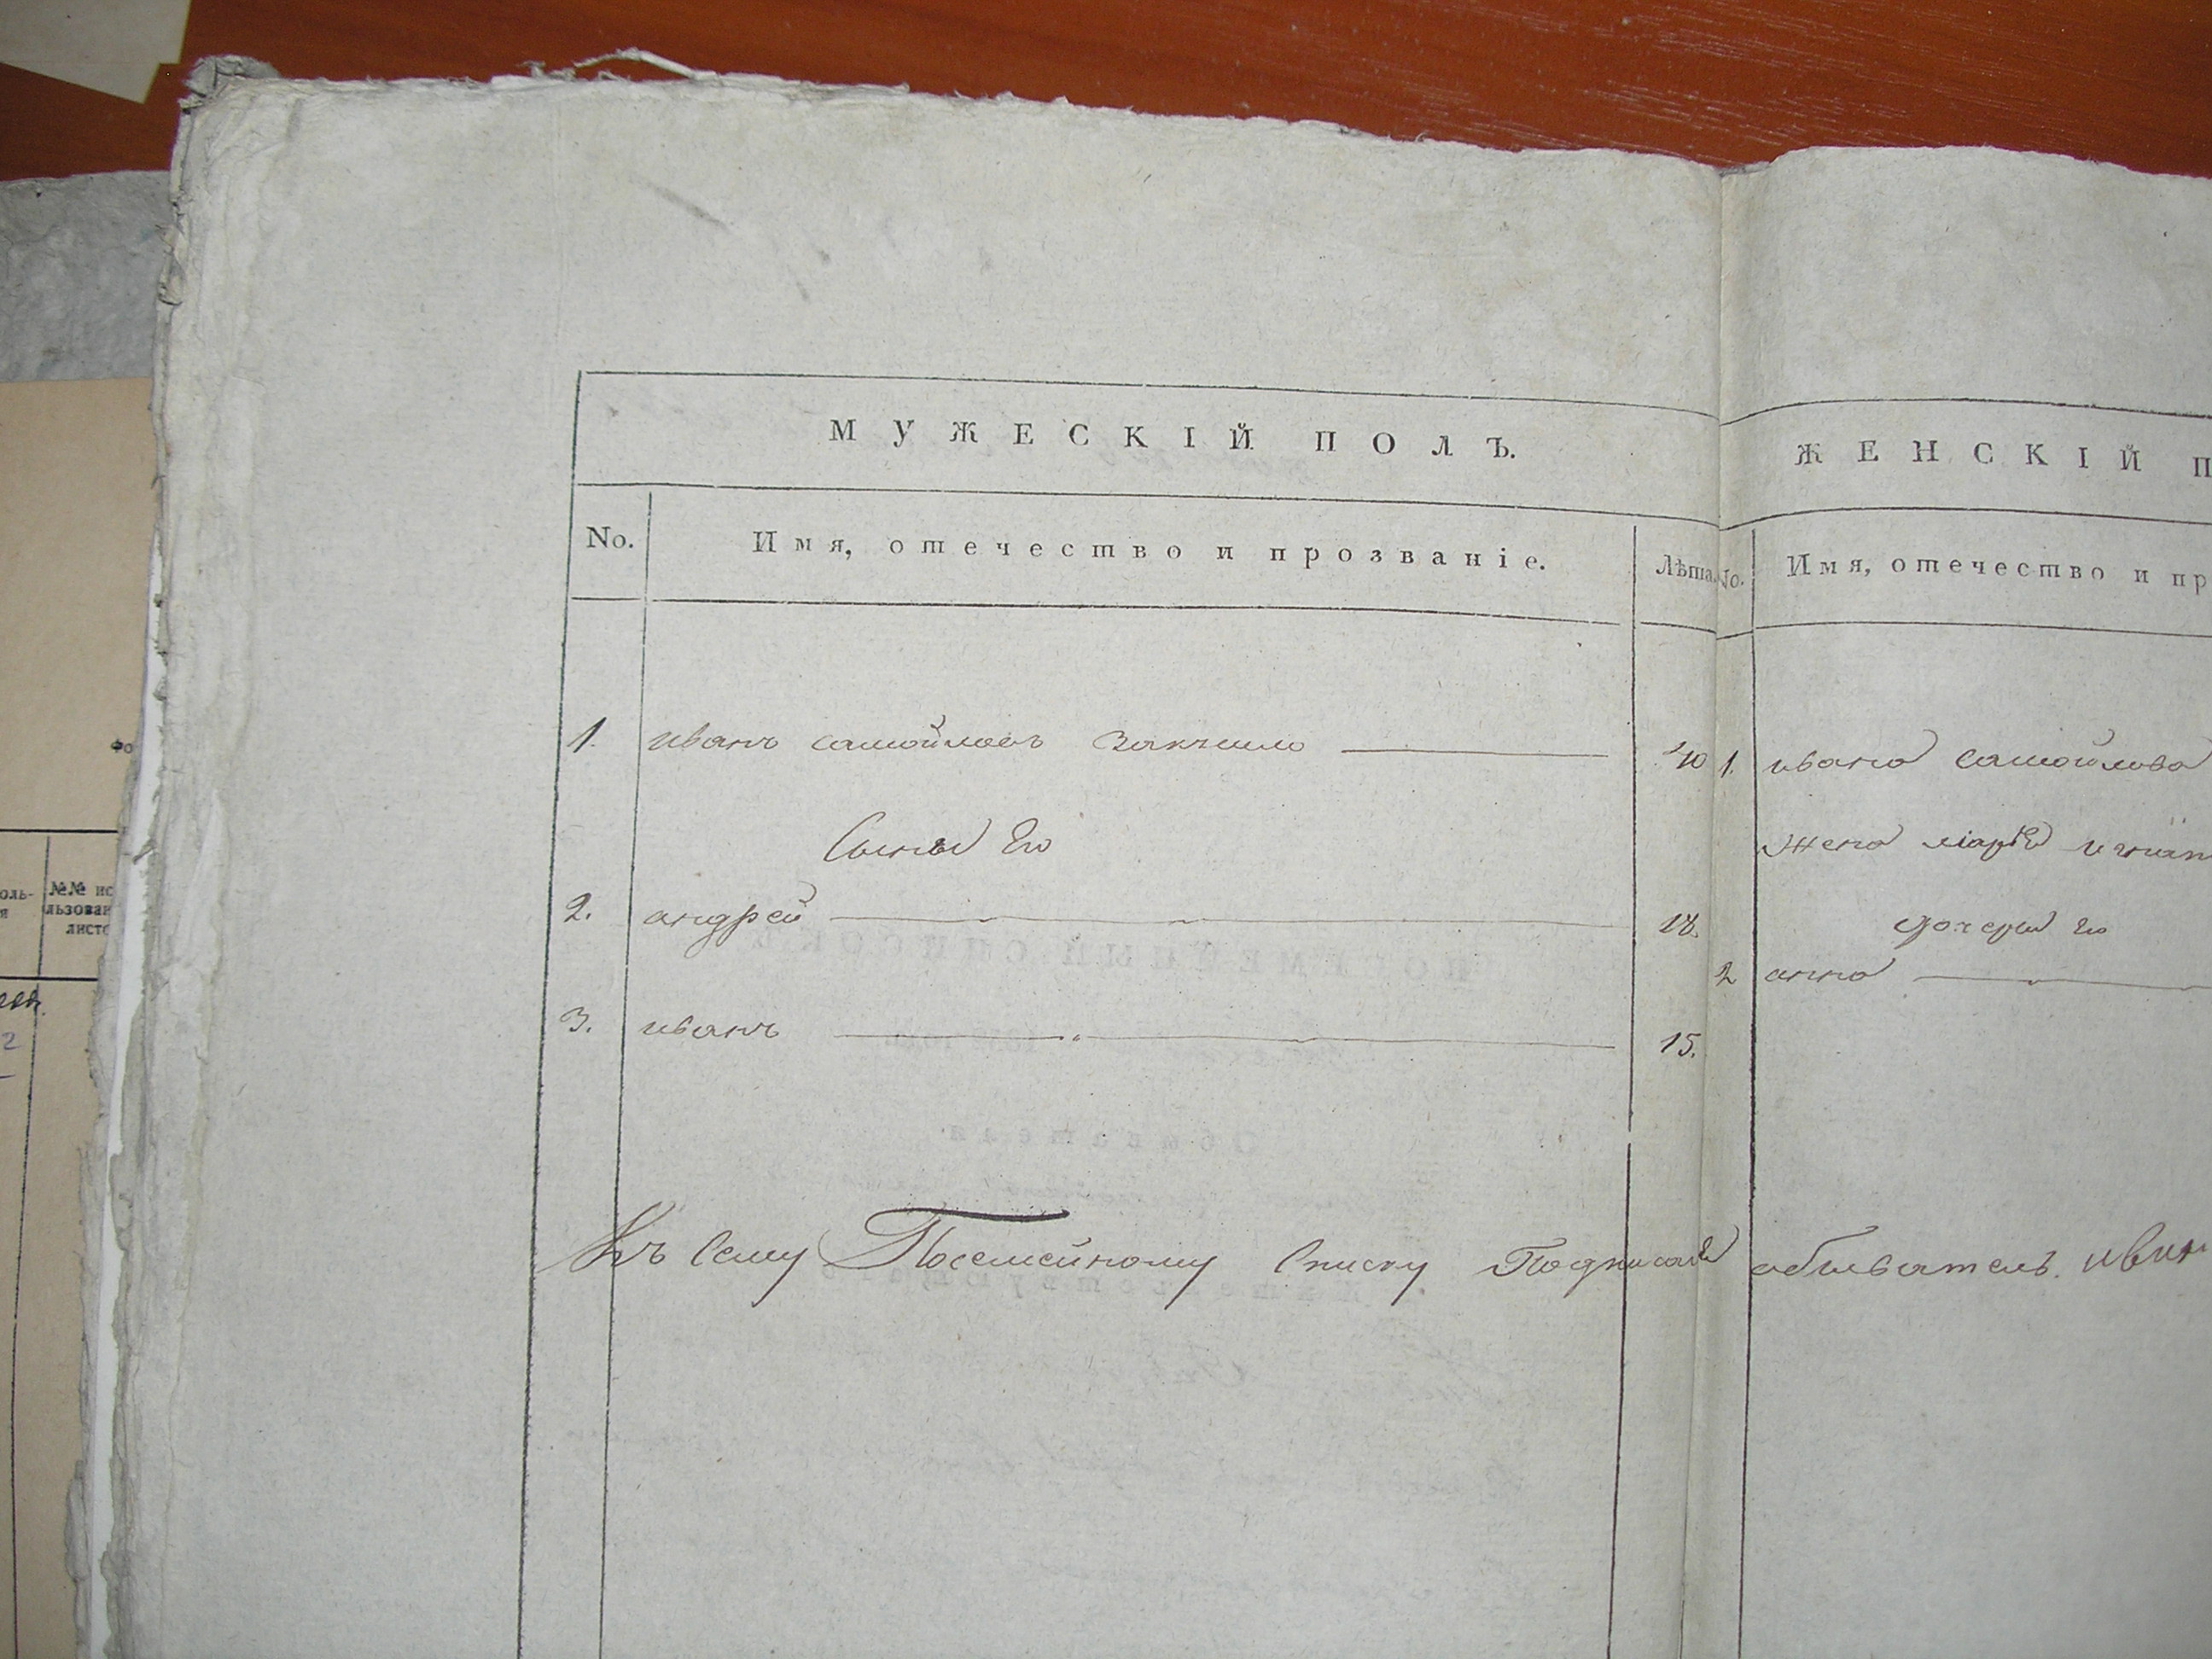 МУЖЕСКІЙ ПОЛЪ.
No. Имя, отечество и прозваніе. Лѣта.
1. иванъ самойловъ 40
Сыны Его
2. андрей 18.
3. иванъ 15.
ЖЕНСКІЙ П
No. Имя, отечество и пр
1. ивана Самойлова
жена
дочери Его
2 анна
Къ Сему Посемейному Списку Подписался обыватель иван
№№ ис
льзован
листо